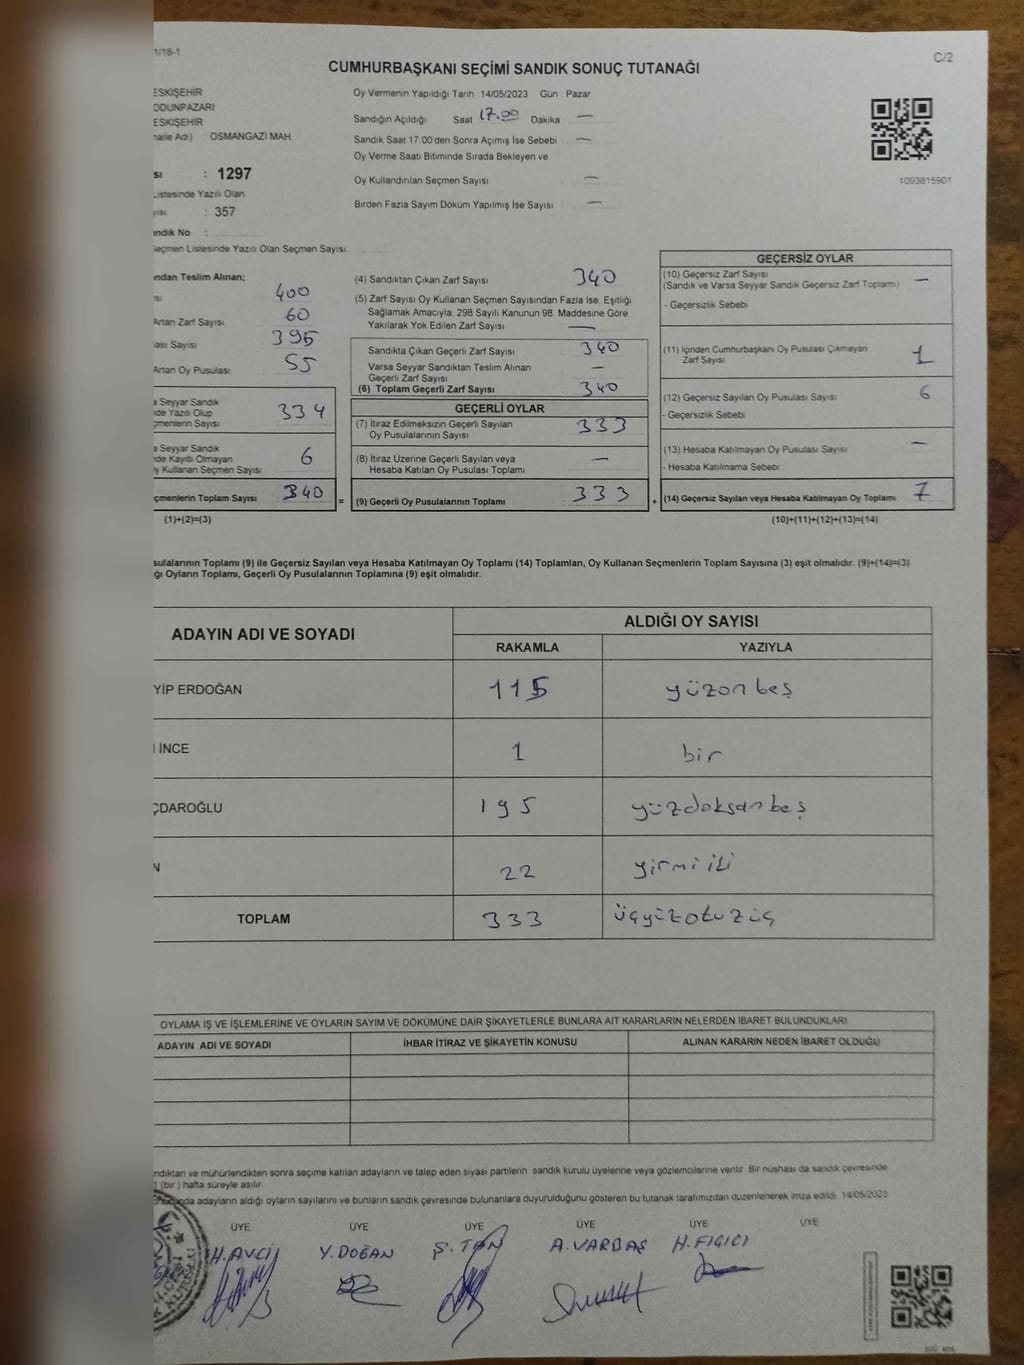 1/18-1
C/2
CUMHURBAŞKANI SEÇİMİ SANDIK SONUÇ TUTANAĞI
ESKİŞEHİR
ODUNPAZARI
ESKİŞEHİR
OSMANGAZİ MAH.
: 1297
Listesinde Yazılı Olan
: 357
andık No :
Seçmen Listesinde Yazılı Olan Seçmen Sayısı
Oy Vermenin Yapıldığı Tarih 14/05/2023 Gün : Pazar
Sandığın Açıldığı Saat 17.00 Dakika —
Sandık Saat 17:00'den Sonra Açımış İse Sebebi —
Oy Verme Saati Bitiminde Sırada Bekleyen ve
Oy Kullandırılan Seçmen Sayısı —
Birden Fazla Sayım Döküm Yapılmış İse Sayısı —
1093815901
ından Teslim Alınan;
400
Artan Zarf Sayısı 60
lası Sayısı 395
Artan Oy Pusulası 55
a Seyyar Sandık
de Yazılı Olup
çmenlerin Sayısı 334
a Seyyar Sandık
de Kayıtlı Olmayan
y Kullanan Seçmen Sayısı 6
çmenlerin Toplam Sayısı 340 =
(1)+(2)=(3)
(4) Sandıktan Çıkan Zarf Sayısı 340
(5) Zarf Sayısı Oy Kullanan Seçmen Sayısından Fazla İse, Eşitliği
Sağlamak Amacıyla, 298 Sayılı Kanunun 98. Maddesine Göre
Yakılarak Yok Edilen Zarf Sayısı —
Sandıkta Çıkan Geçerli Zarf Sayısı 340
Varsa Seyyar Sandıktan Teslim Alınan
Geçerli Zarf Sayısı —
(6) Toplam Geçerli Zarf Sayısı 340
GEÇERLİ OYLAR
(7) İtiraz Edilmeksizin Geçerli Sayılan
Oy Pusulalarının Sayısı 333
(8) İtiraz Üzerine Geçerli Sayılan veya
Hesaba Katılan Oy Pusulası Toplamı —
(9) Geçerli Oy Pusulalarının Toplamı 333 +
GEÇERSİZ OYLAR
(10) Geçersiz Zarf Sayısı
(Sandık ve Varsa Seyyar Sandık Geçersiz Zarf Toplamı) —
- Geçersizlik Sebebi
(11) İçinden Cumhurbaşkanı Oy Pusulası Çıkmayan
Zarf Sayısı 1
(12) Geçersiz Sayılan Oy Pusulası Sayısı 6
- Geçersizlik Sebebi
(13) Hesaba Katılmayan Oy Pusulası Sayısı —
- Hesaba Katılmama Sebebi
(14) Geçersiz Sayılan veya Hesaba Katılmayan Oy Toplamı 7
(10)+(11)+(12)+(13)=(14)
sulalarının Toplamı (9) ile Geçersiz Sayılan veya Hesaba Katılmayan Oy Toplamı (14) Toplamları, Oy Kullanan Seçmenlerin Toplam Sayısına (3) eşit olmalıdır. (9)+(14)=(3)
ğı Oyların Toplamı, Geçerli Oy Pusulalarının Toplamına (9) eşit olmalıdır.
ADAYIN ADI VE SOYADI ALDIĞI OY SAYISI
RAKAMLA YAZIYLA
YİP ERDOĞAN 115 yüzonbeş
İNCE 1 bir
ÇDAROĞLU 195 yüzdoksanbeş
N 22 yirmiiki
TOPLAM 333 üçyüzotuzüç
OYLAMA İŞ VE İŞLEMLERİNE VE OYLARIN SAYIM VE DÖKÜMÜNE DAİR ŞİKAYETLERLE BUNLARA AİT KARARLARIN NELERDEN İBARET BULUNDUKLARI
ADAYIN ADI VE SOYADI İHBAR İTİRAZ VE ŞİKAYETİN KONUSU ALINAN KARARIN NEDEN İBARET OLDUĞU
ndıktan ve mühürlendikten sonra seçime katılan adayların ve talep eden siyasi partilerin sandık kurulu üyelerine veya gözlemcilerine verilir. Bir nüshası da sandık çevresinde
1 (bir ) hafta süreyle asılır.
unda adayların aldığı oyların sayılarını ve bunların sandık çevresinde bulunanlara duyurulduğunu gösteren bu tutanak tarafımızdan düzenlenerek imza edildi. 14/05/2023
ÜYE ÜYE ÜYE ÜYE ÜYE ÜYE
H. AVCİ Y. DOĞAN Ş. TAN A. VARBAŞ H. FIGICI